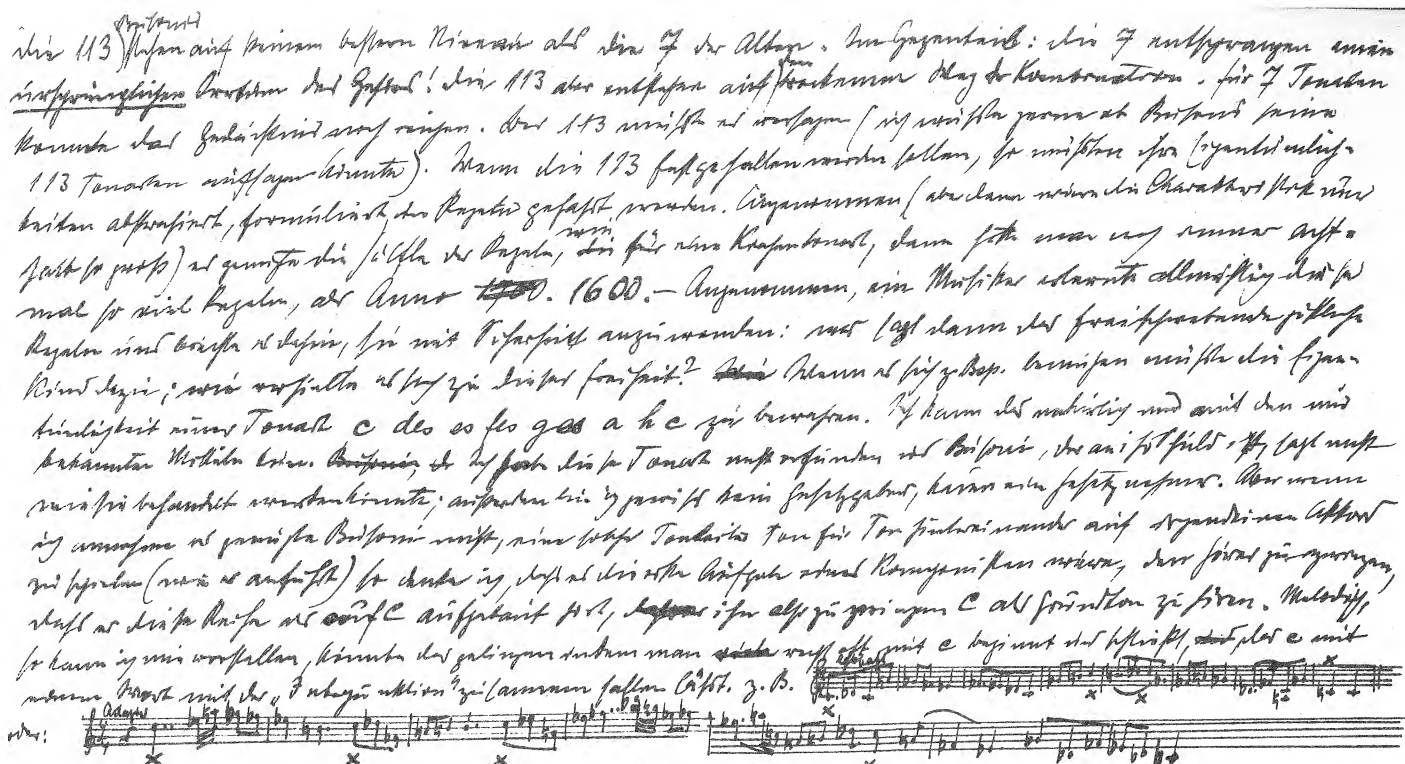 Busonis
die 113 stehen auf keinem bessern Niveau als die 7 der Alten. Im Gegenteil: die 7 entsprangen einem
ursprünglichen Irrtum des Gehörs! die 113 aber entstehen auf dem trockenen Weg der Kombination. für 7 Tonarten
konnte das Gedächtnis noch reichen. Bei 113 müsste es versagen (ich wüsste gerne ob Busoni seine
113 Tonarten aufsagen könnte). Wenn die 113 festgehalten werden sollen, so müssten ihre Eigentümlich-
keiten abstrahiert, formuliert, in Regeln gefasst werden. Angenommen (aber dann wäre die Charakteristik nur
halb so groß) es genügte die Hälfte der Regeln, wie für eine Kirchentonart, dann hätte man noch immer acht-
mal so viel Regeln, als Anno 1600. – Angenommen, ein Musiker erlernte allmählich diese
Regeln und brächte es dahin, sie mit Sicherheit anzuwenden: was sagt dann das freischwebende göttliche
Kind dazu; wie verhielte es sich zu dieser Freiheit? Wenn es sich z. Bsp. bemühen müsste die Eigen-
tümlichkeit einer Tonart c des es fes ges a h c zu bewahren. Ich kann das natürlich nur mit den mir
bekannten Mitteln tun. Ich habe diese Tonart nicht erfunden und Busoni, der sagt nicht
wie sie behandelt werden könnte; außerdem bin ich gewiss kein Gesetzgeber, kaum ein Gesetznehmer. Aber wenn
ich annehme es genügte Busoni nicht, eine solche Tonleiter Ton für Ton hintereinander auf irgendeinem Akkord
zu spielen (wie er anführt) so denke ich, dass es die erste Aufgabe eines Komponisten wäre, den Hörer zu zwingen,
dass er diese Reihe als auf C aufgebaut hört, ihn also zu zwingen C als Grundton zu hören. Melodisch,
so kann ich mir vorstellen, könnte das gelingen indem man recht oft mit c beginnt und schließt, das c mit
einem Wort mit der „ zusammen fallen lässt. z. B.
oder: Adagio